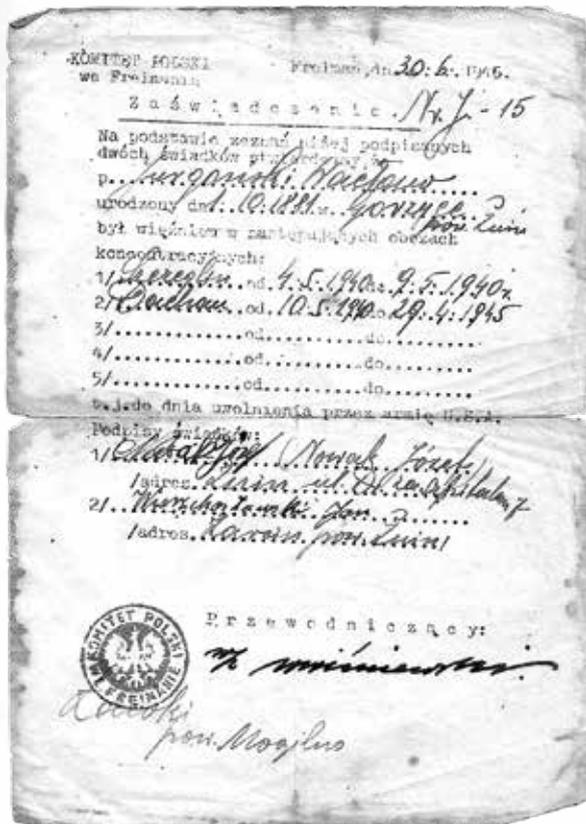 KOMITET POLSKI
we Freimanie
Freiman, dn. 30.6. 1945.
Zaświadczenie. Nr. J. - 15
Na podstawie zeznań niżej podpisanych
dwóch świadków stwierdzamy, że
p. Jurgoński Wacław
urodzony dn. 1.10.1881 w Gorzyce pow. Żnin
był więźniem w następujących obozach
koncentracyjnych:
1/ od 4.5.1940 9.5.1940r.
2/ Dachau od 10.5.1940 do 29.4.1945
3/..............od..........do..........
4/..............od..........do..........
5/..............od..........do..........
t.j. do dnia uwolnienia przez armię U.S.A.
Podpisy świadków:
1/ Nowak Józef (Nowak Józef)
/adres Żnin ul. 7
2/ Jan
/adres pow. Żnin/
Przewodniczący:
Wiśniewski
KOMITET POLSKI
WE FREIMANIE
pow. Mogilno